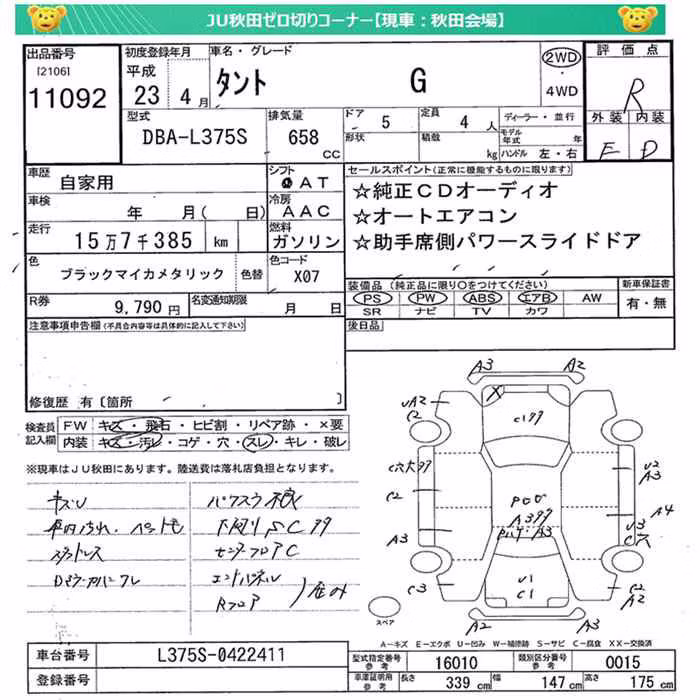 JU秋田ゼロ切りコーナー【現車：秋田会場】
出品番号
[2106]
11092
初度登録年月
平成
23 4月
車名・グレード
タント G
2WD
4WD
評価点
R
外装 内装
E D
型式
DBA-L375S
排気量
658
cc
ドア 5
形状
定員 4 人
積載 kg
ディーラー・並行
モデル年式 年
ハンドル 左・右
車歴
自家用
シフト
AT
車検
年 月( 日)
冷房
AAC
走行
15万7千385 km
燃料
ガソリン
色
ブラックマイカメタリック
色替
色コード
X07
R券
9,790円
名変通知期限
月 日
セールスポイント(正常に機能するものに限ります)
☆純正CDオーディオ
☆オートエアコン
☆助手席側パワースライドドア
装備品(純正品に限り○をつけてください)
PS PW ABS エアB AW
SR ナビ TV カワ
新車保証書
有・無
後日品
注意事項申告欄(不具合内容等は具体的に記入して下さい)
修復歴 有〔箇所 〕
検査員記入欄
FW キズ・飛石・ヒビ割・リペア跡・×要
内装 キズ・汚レ・コゲ・穴・スレ・キレ・破レ
※現車はJU秋田にあります。陸送費は落札店負担となります。
キズU
車内汚れ、ペット毛
スタッドレス
パワスラ不良
下廻りSCサ
センターフロアC
エンドパネル
Rフロア
A3 A2
UA2
C2
X
C2
A3
C3
U2
A3
A4
U3
C穴
C2
A2
A2 A3
U1
C1
スペア
A－キズ E－エクボ U－凹み W－補修跡 S－サビ C－腐食 XX－交換済
車台番号
L375S-0422411
登録番号
型式指定番号 参考
16010
類別区分番号 参考
0015
車庫証明用 参考
長さ 339 cm
幅 147 cm
高さ 175 cm